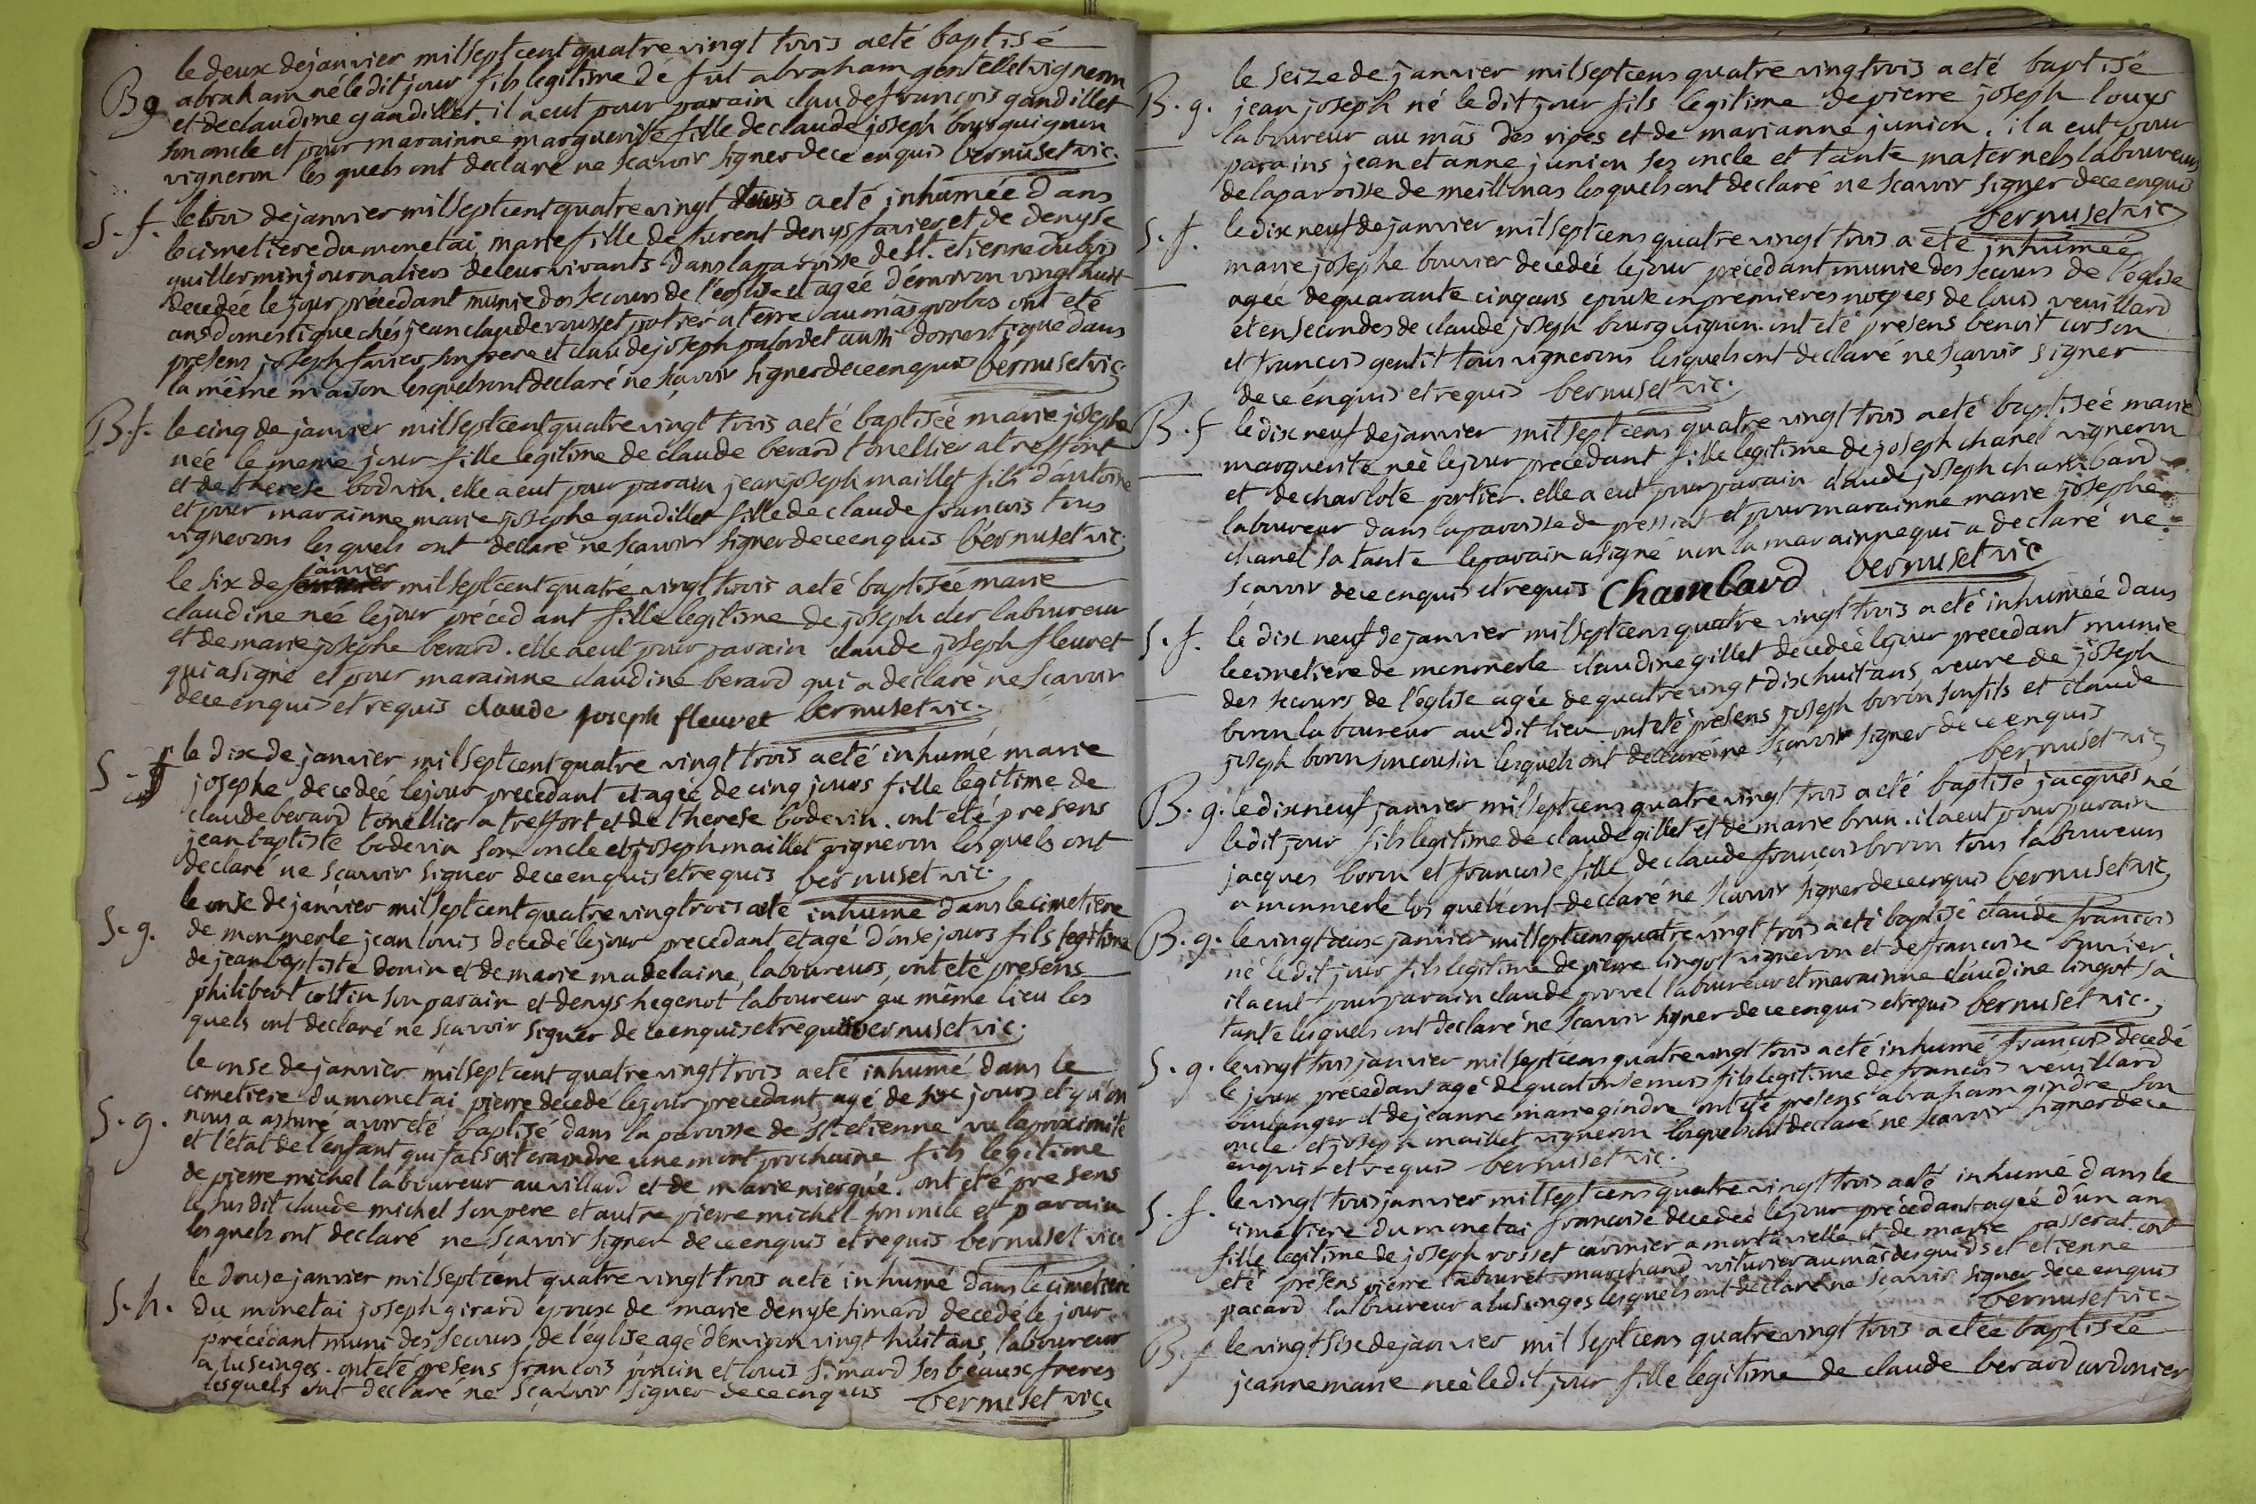 le deux de janvier mil sept cent quatre vingt trois a eté baptisé
B g abraham né le dit jour fils legitime de fut abraham gentellet vigneron
et de claudine gandillet. il a eut pour parain claude francois gandillet
son oncle et pour marainne marguerite fille de claude joseph bourguignon
vigneron les quels ont declaré ne scavoir signer de ce enquis bernuset vic.
S. f. le trois de janvier mil sept cent quatre vingt trois a eté inhumée dans
le cimetiere du monetai marie fille de furent denys favier et de denyse
guillermin journaliers de leur vivants dans la paroisse de st. etienne du bois
decedée le jour precedant munie des secours de l'eglise et agée d'environ vingt huit
ans domestique chés jean claude rousset potier a terre au mas ont eté
presens joseph favier son frere et claude joseph palordet aussi domestique dans
la même maison lesquels ont declaré ne sçavoir signer de ce enquis bernuset vic.
B. f. le cinq de janvier mil sept cent quatre vingt trois a eté baptisée marie josephe
née le meme jour fille legitime de claude berard tonellier a treffort
et de therese bodvin. elle a eut pour parain jean joseph maillet fils d'antoine
et pour marainne marie josephe gandillet fille de claude francois tous
vignerons les quels ont declaré ne scavoir signer de ce enquis bernuset vic.
janvier
le six de mil sept cent quatre vingt trois a eté baptisée marie
claudine née le jour précedant fille legitime de joseph cler laboureur
et de marie josephe berard. elle a eut pour parain claude joseph fleuret
qui a signé et pour marainne claudine berard qui a declaré ne scavoir
de ce enquis et requis claude joseph fleuret bernuset vic.
S. f le dix de janvier mil sept cent quatre vingt trois a eté inhumé marie
josephe decedée le jour precedant et agée de cinq jours fille legitime de
claude berard tonellier a treffort et de therese bodevin. ont eté presens
jean baptiste bodevin son oncle et joseph maillet vigneron les quels ont
declaré ne sçavoir signer de ce enquis et requis bernuset vic.
le onse de janvier mil sept cent quatre vingt trois a eté inhumé dans le cimetiere
S. g. de monmerle jean louis decedé le jour precedant et agé d'onse jours fils legitime
de jean baptiste donin et de marie madelaine, laboureurs, ont eté presens
philibert cottin son parain et denys hegenot laboureur au même lieu les
quels ont declaré ne sçavoir signer de ce enquis et requis bernuset vic.
le onse de janvier mil sept cent quatre vingt trois a eté inhumé dans le
cimetiere du monetai pierre decedé le jour precedant agé de six jours et qu'on
S. g. nous a assuré avoir eté baptisé dans la paroisse de st. etienne vu la proximité
et l'état de l'enfant qui faisoit craindre une mort prochaine fils legitime
de pierre michel laboureur au villard et de marie niergue. ont eté presens
le susdit claude michel son pere et autre pierre michel son oncle et parain
les quels ont declaré ne sçavoir signer de ce enquis et requis bernuset vic.
le douse janvier mil sept cent quatre vingt trois a eté inhumé dans le cimetiere
S. h. du monetai joseph girard epoux de marie denyse simard decedé le jour
précédant muni des secours de l'église agé d'environ vingt huit ans, laboureur
a lucinges. ont eté presens francois poncin et louis simard ses beaux freres
lesquels ont declaré ne sçavoir signer de ce enquis bernuset vic.
le seize de janvier mil sept cens quatre vingt trois a eté baptisé
B. g. jean joseph né le dit jour fils legitime de pierre joseph louys
laboureur au mas des ripes et de marianne junion. il a eut pour
parains jean et anne junion ses oncle et tante maternels laboureurs
de la paroisse de meillonas lesquels ont declaré ne scavoir signer de ce enquis
bernuset vic
S. f. le dix neuf de janvier mil sept cens quatre vingt trois a eté inhumée
marie josephe bouvier decedée le jour précedant munie des secours de l'église
agée de quarante cinq ans epouse en premieres nopces de louis veuillard
et en secondes de claude joseph bourguignon. ont eté presens benoit corson
et francois gentit tous vignerons lesquels ont declaré ne sçavoir signer
de ce enquis et requis bernuset vic.
B. f le dix neuf de janvier mil sept cens quatre vingt trois a eté baptiseé marie
marguerite neé le jour precédant fille legitime de joseph chanel vigneron
et de charlote portier. elle a eut pour parain claude joseph chambard
laboureur dans la paroisse de pressiat et pour marainne marie josephe
chanel sa tante le parain a signé non la marainne qui a declaré ne
scavoir de ce enquis et requis Chambard bernuset vic
S. f. le dix neuf de janvier mil sept cens quatre vingt trois a eté inhumeé dans
le cimetiere de monmerle claudine gillet decedeé le jour precedant munie
des secours de l'église agée de quatre vingt dix huit ans, veuve de joseph
boron laboureur au dit lieu ont eté presens joseph boron son fils et claude
joseph boron son cousin lesquels ont declaré ne sçavoir signer de ce enquis
bernuset vic
B. g. le dix neuf janvier mil sept cens quatre vingt trois a eté baptisé jacques né
le dit jour fils legitime de claude gillet et de marie brun. il a eut pour parain
jacques boron et francoise fille de claude françois boron tous laboureurs
a monmerle les quels ont declaré ne scavoir signer de ce enquis bernuset vic
B. g. le vingt deux janvier mil sept cens quatre vingt trois a eté baptisé claude francois
né le dit jour fils legitime de pierre lingot vigneron et de francoise bouvier
il a eut pour parain claude provel laboureur et marainne claudine lingot sa
tante lesquels ont declaré ne scavoir signer de ce enquis et requis bernuset vic.
S. g. le vingt trois janvier mil sept cens quatre vingt trois a eté inhumé francois decedé
le jour précedant agé de quatorse mois fils legitime de francois veuillard
boulanger et de jeanne marie gindre ont eté presens abraham gindre son
oncle et joseph maillet vigneron lesquels ont declaré ne scavoir signer de ce
enquis et requis bernuset vic.
S. f. le vingt trois janvier mil sept cens quatre vingt trois a eté inhumé dans le
cimetiere du monetai francoise decedeé le jour précédant agée d'un an
fille legitime de joseph rosset a mortavielle et de marie passerat. ont
eté presens pierre tabouret marchand voiturier au mas des guids et etienne
pacard laboureur a lusinges lesquels ont declaré ne sçavoir signer de ce enquis
bernuset vic.
B. f le vingt six de janvier mil sept cens quatre vingt trois a eteé baptiseé
jeanne marie neé le dit jour fille legitime de claude berard cordonier